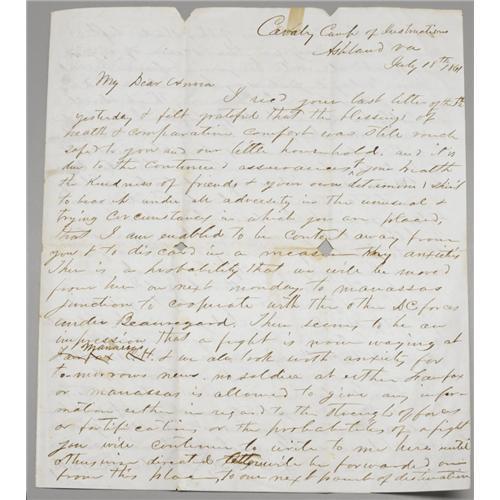 Cavalry Camp of Instructions
Ashland Va
July 18th 1861
My Dear Anna
I recd your last letter of the
yesterday & felt grateful that the blessings of
health & comparative comfort was still vouch
safed to you and our little household. and it is
due to the continued assurances, of your health
the kindness of friends & your own determined spirit
to bear up under all adversity in the unusual &
trying circumstances in which you are placed,
that I am enabled to be content away from
you & to discard in a measure my anxieties
There is a probability that we will be moved
from here on next monday to manassas
junction to cooperate with the other forces
under Beauregard. There seems to be an
impression that a fight is now waging at
Manassas
Fairfax C.H. & we also look with anxiety for
tomorrows news. no soldier at either Fairfax
or manassas is allowed to give any infor-
mation either in regard to the strength of forces
or fortifications or the probabilities of a fight
you will continue to write to me here until
otherwise directed letters will be forwarded on
from this place, to our next point of destination